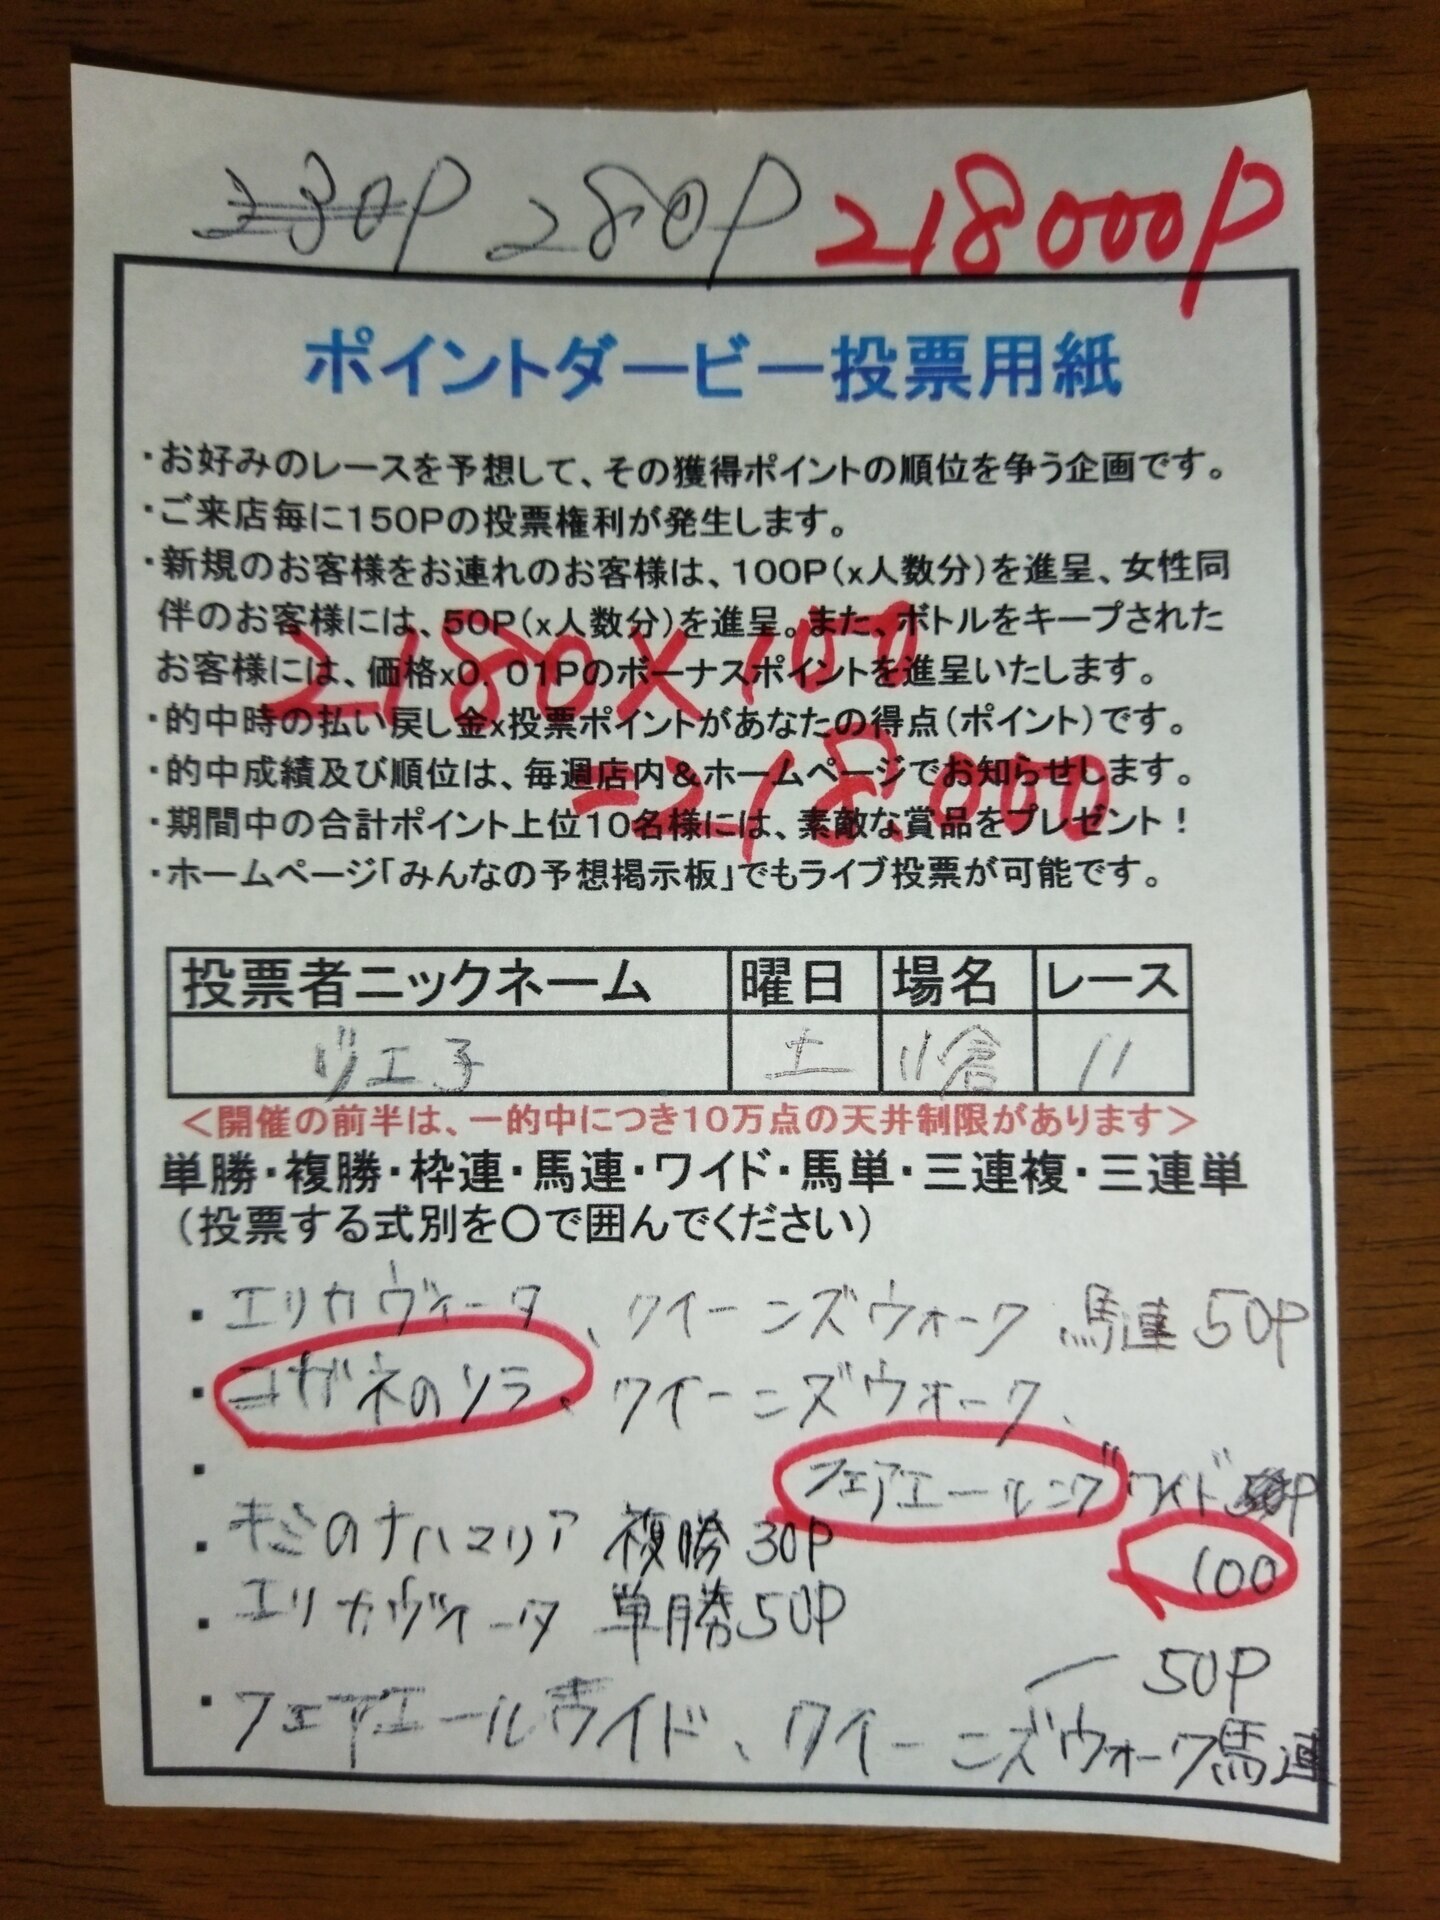 230P 280P 218000P
ポイントダービー投票用紙
・お好みのレースを予想して、その獲得ポイントの順位を争う企画です。
・ご来店毎に150Pの投票権利が発生します。
・新規のお客様をお連れのお客様は、100P(x人数分)を進呈、女性同
伴のお客様には、50P(x人数分)を進呈。また、ボトルをキープされた
お客様には、価格x0.01Pのボーナスポイントを進呈いたします。
2180×100
・的中時の払い戻し金x投票ポイントがあなたの得点(ポイント)です。
・的中成績及び順位は、毎週店内&ホームページでお知らせします。
=218.000
・期間中の合計ポイント上位10名様には、素敵な賞品をプレゼント!
・ホームページ「みんなの予想掲示板」でもライブ投票が可能です。
投票者ニックネーム 曜日 場名 レース
ジエ子 土 小倉 11
<開催の前半は、一的中につき10万点の天井制限があります>
単勝・複勝・枠連・馬連・ワイド・馬単・三連複・三連単
(投票する式別を○で囲んでください)
・エリカヴィータ、クイーンズウォーク 馬連 50P
・コガネのソラ、クイーンズウォーク、
・フェアエールング ワイド 50P
100
・キミのナハマリア 複勝 30P
・エリカヴィータ 単勝 50P
50P
・フェアエールライド、クイーンズウォーク馬連